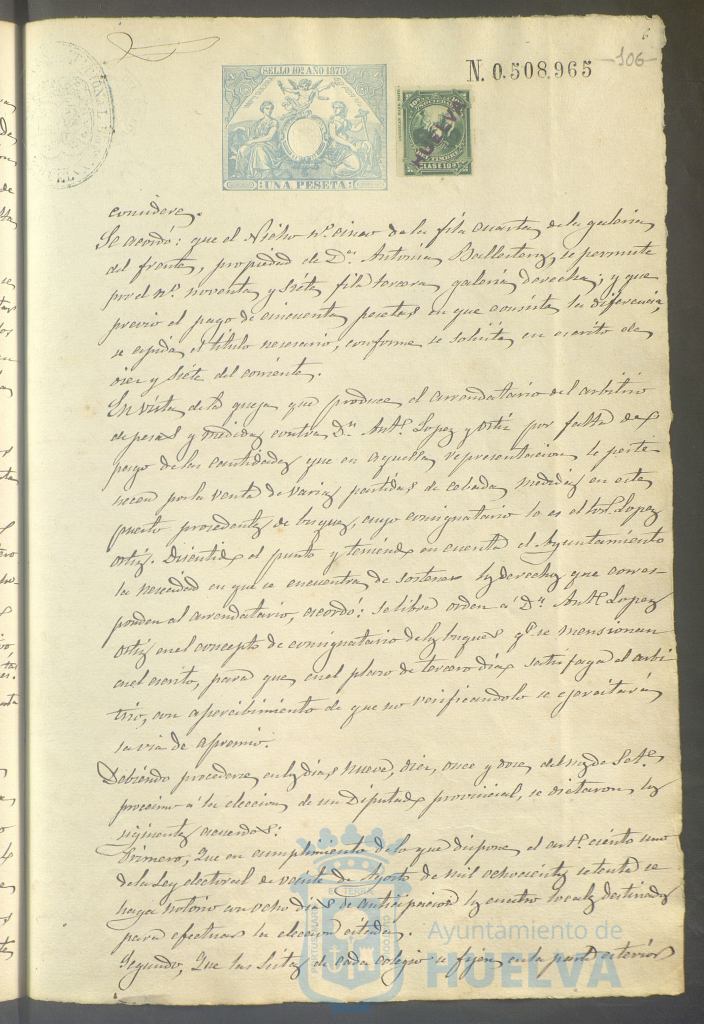 6
-106-
SELLO 10º AÑO 1878
UNA PESETA
HUELVA
CLASE 10ª
N. 0.508,965
considere.
Se acordó: que el Nicho nº cinco de la fila cuarta de la galeria
del frente, propiedad de Dª Antonia Ballester, se permute
por el nº noventa y siete fila tercera galeria derecha; y que
previo el pago de cincuenta pesetas en que consiste la diferencia,
se expida el título necesario, conforme se solicita en escrito de
diez y siete del corriente.
En vista de la queja que produce el arrendatario del arbitrio
de pesas y medidas contra Dn Antº Lopez y Ortiz por falta de
pago de las cantidades que en aquella representacion le perte
necen por la venta de varias partidas de cebada medidas en este
puerto procedentes de buques, cuyo consignatario lo es el Lopez
Ortiz. Discutido el punto y teniendo en cuenta el Ayuntamiento
la necesidad en que se encuentra de sostener los derechos que corres-
ponden al arrendatario, acordó: Se libre orden á Dn Antº Lopez
Ortiz en el concepto de consignatario de los buques qe se mensionan
en el escrito, para que en el plazo de tercero dia satisfaga el arbi
trio, con apercibimiento de que no verificandolo se ejercitará
la via de apremio.
Debiendo procederse en los dias nueve, diez, once y doce del mes de Sete
procsimo á la eleccion de un Diputado provincial, se dictaron los
siguientes acuerdos:
Primero, Que en cumplimiento de lo que dispone el artº ciento uno
de la Ley electoral de veinte de Agosto de mil ochocientos setenta se
haga notorio con ocho dias de anticipacion los cuatro locales destinados
para efectuar la eleccion citada.
Segundo, Que las listas de cada colegio se fijen en la parte esterior
Ayuntamiento de
HUELVA